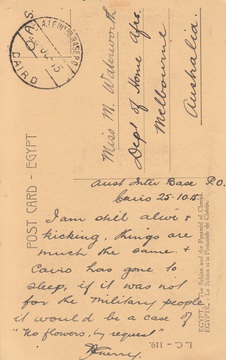 Miss M. Walworth
Dept of Home Afrs.
Melbourne
Australia
CAIRO
POST CARD - EGYPT
Aust Inter Base P.O.
Cairo 25.10.15.
I am still alive &
kicking, things are
much the same &
Cairo has gone to
sleep, if it was not
for the military people
it would be a case of
"No flowers, by request"
L. C. 119.
EGYPT. - The Sphinx and the Pyramid of Cheops.
EGYPTE. - Le Sphinx et la Pyramide de Chéops.